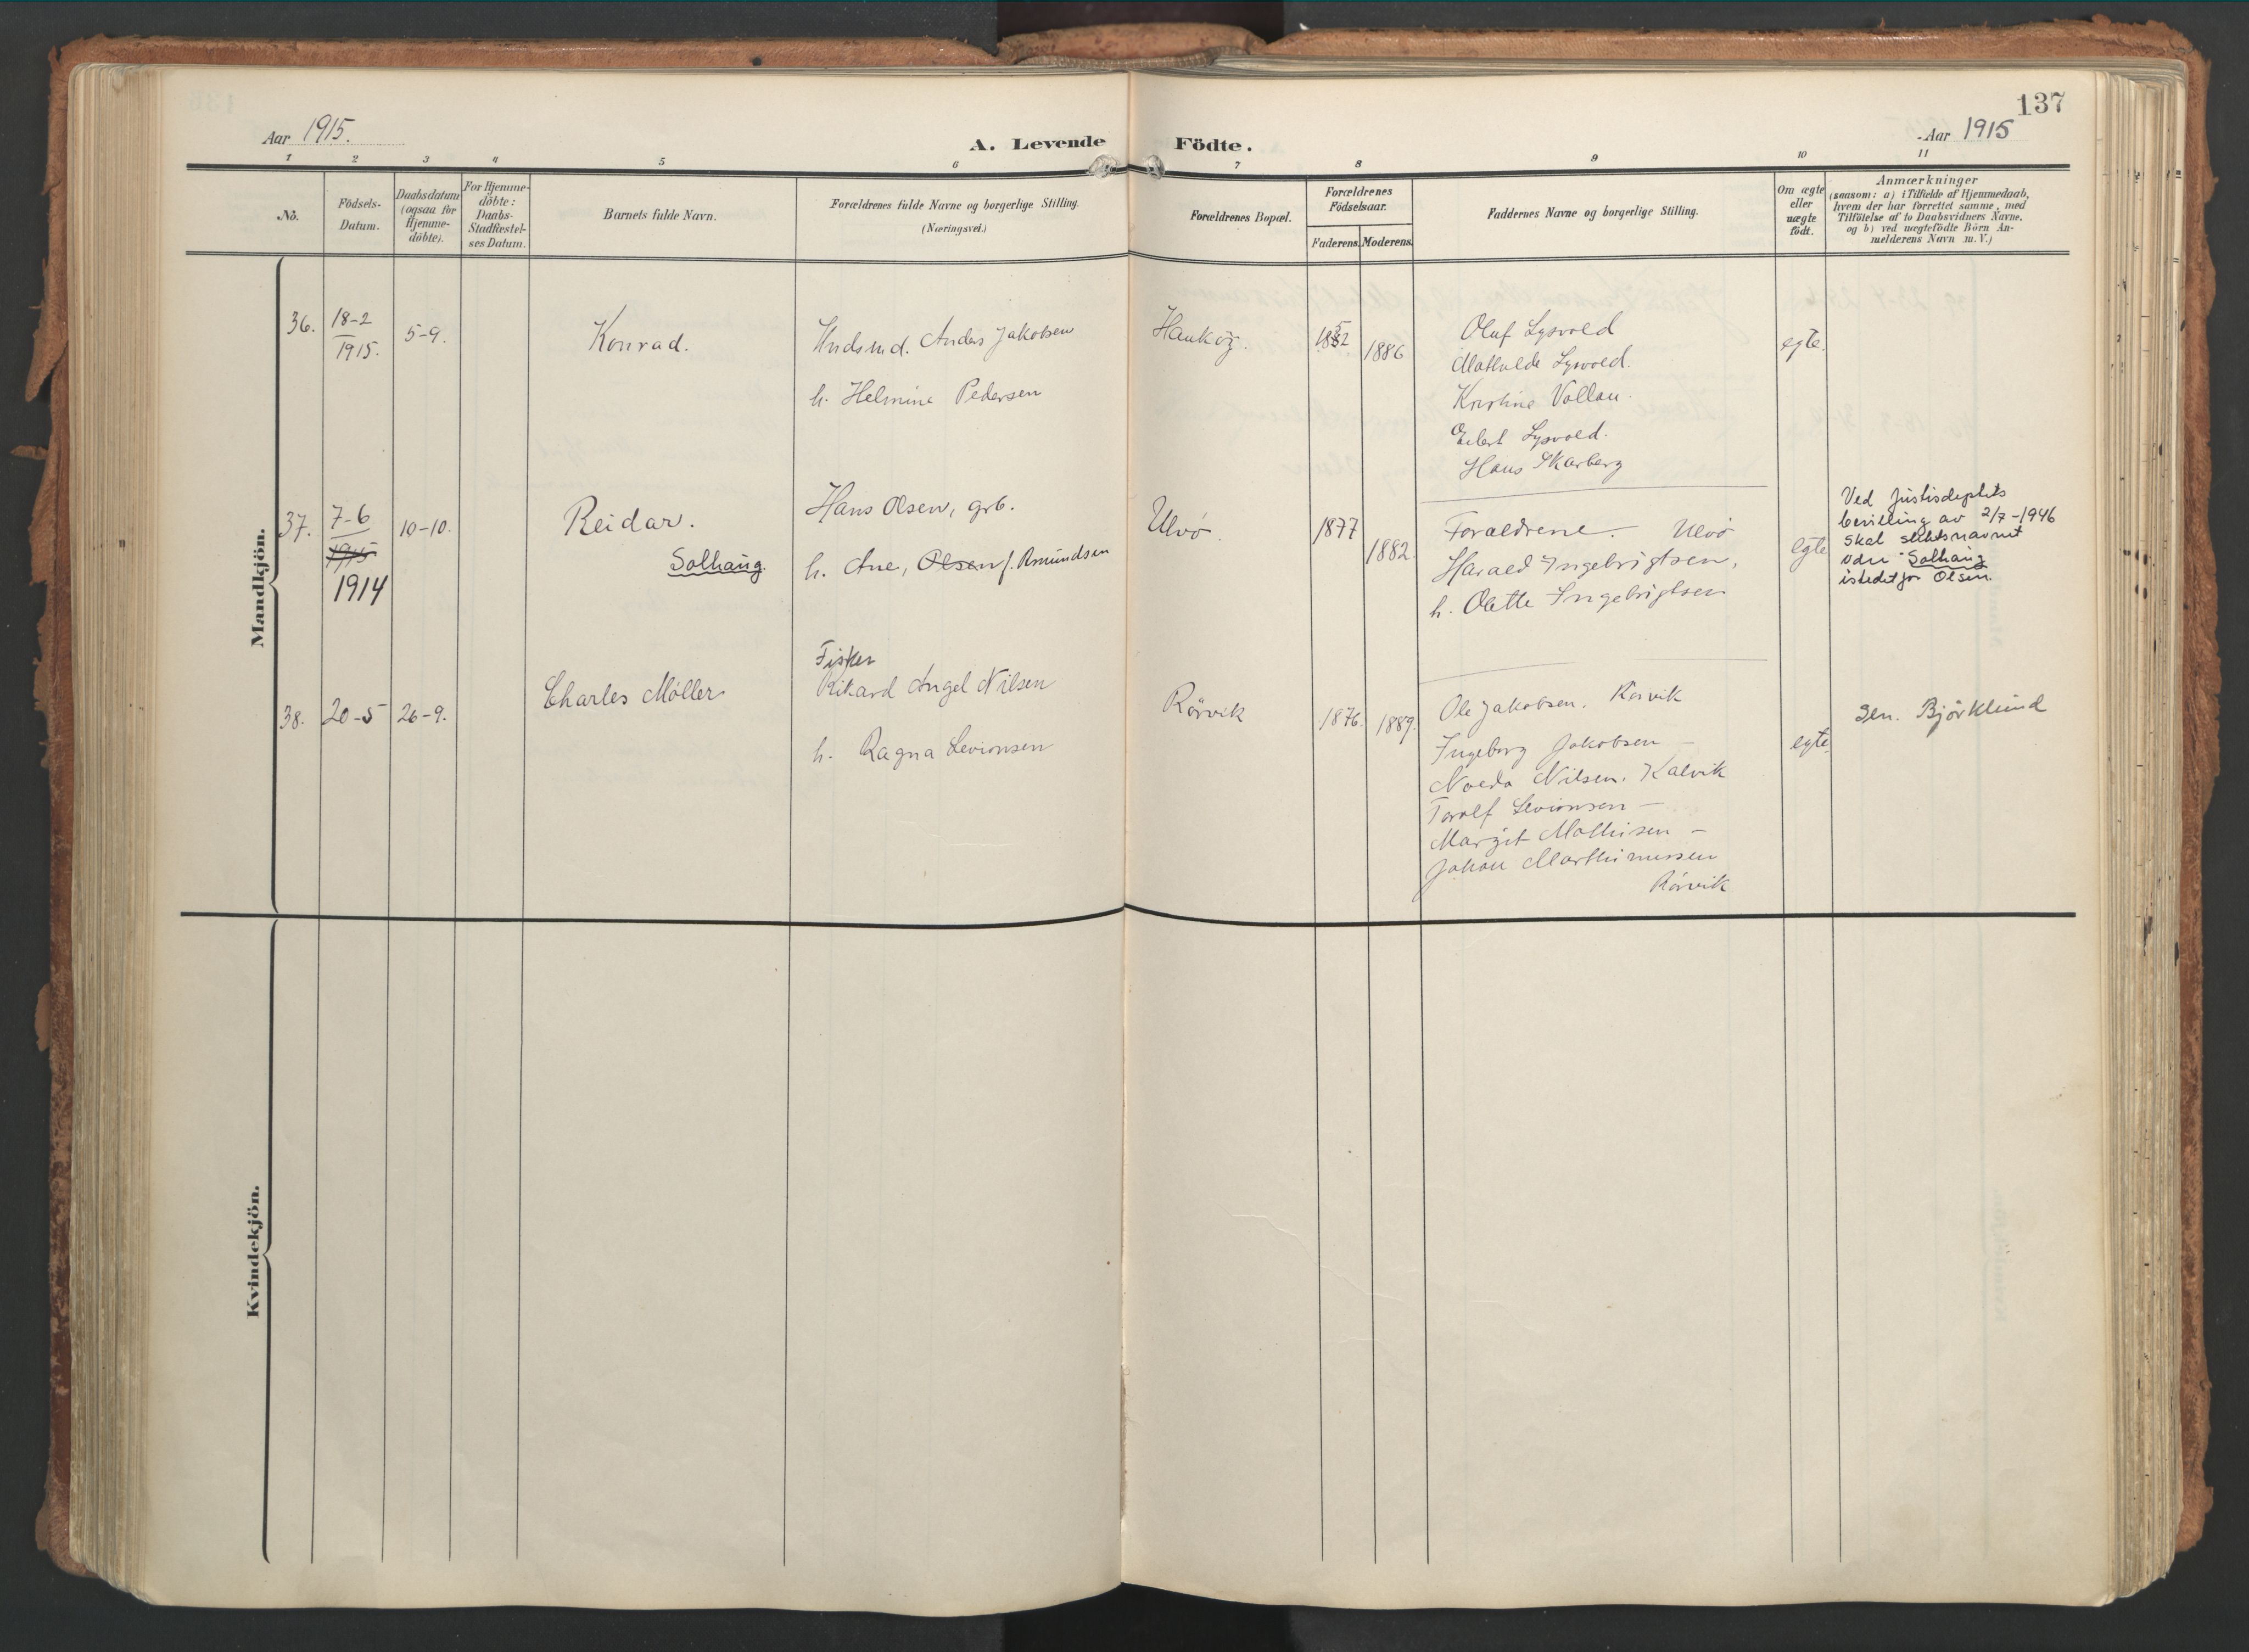 137
Aar 1915.
A. Levende Födte.
Aar 1915
1 2 3 4 5 6 7 8 9 10 11
No.
Födsels-
Datum.
Daabsdatum
(ogsaa for
Hjemme-
döbte).
For Hjemme-
döbte:
Daabs-
Stadfæstel-
ses Datum.
Barnets fulde Navn.
Forældrenes fulde Navne og borgerlige Stilling.
(Næringsvei.)
Forældrenes Bopæl.
Forældrenes
Födselsaar.
Faderens. Moderens.
Faddernes Navne og borgerlige Stilling.
Om ægte
eller
uægte
födt.
Anmærkninger
(saasom: a) i Tilfælde af Hjemmedaab,
hvem der har forrettet samme, med
Tilföielse af to Daabsvidners Navne,
og b) ved uægtefödte Börn An-
melderens Navn m. V.)
Mandkjön.
36.
18-2
1915.
5-9.
Konrad.
Anders Jakobsen
h. Helmine Pedersen
1886
Oluf Lysvold
Mathilde Lysvold.
Kristine Vollan.
Eilert Lysvold.
Hans Skarberg
egte.
37.
7-6
1915
1914
10-10.
Reidar.
Solhaug.
Hans Olsen, grb.
h. Ane, Olsen f. Amundsen
Ulvö.
1877
1882.
Forældrene. Ulvö
Harald Ingebrigtsen,
h. Olette Ingebrigtsen
egte
Ved Justisdeptets
bevilling av 2/7-1946
skal slektsnavnet
være Solhaug
istedetfor Olsen.
38.
20-5
26-9.
Charles Möller
Fisker
Rikard Angel Nilsen
h. Ragna Levionsen
Rörvik
1876.
1889.
Ole Jakobsen. Rörvik
Ingeborg Jakobsen —
Nilsen. Kalvik
Torolf Levionsen —
Margit Mathisen —
Johan Marthinussen
Rörvik
egte.
Björklund
Kvindekjön.